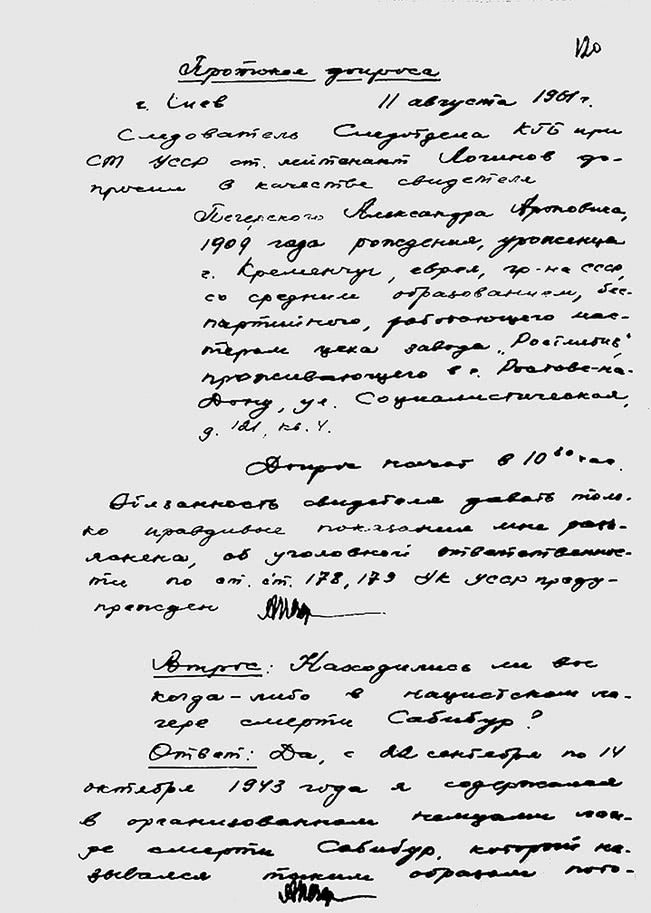 120
Протокол допроса
г. Киев 11 августа 1961 г.
Следователь Следотдела КГБ при
СМ УССР ст. лейтенант Логинов до-
просил в качестве свидетеля
Печерского Александра Ароновича,
1909 года рождения, уроженца
г. Кременчуг, еврея, гр-на СССР,
со средним образованием, бес-
партийного, работающего мас-
тером цеха завода „Ростметиз",
проживающего в г. Ростове-на-
Дону, ул. Социалистическая,
д. 121, кв. 4.
Допрос начат в 10 30 час.
Обязанность свидетеля давать толь-
ко правдивые показания мне разъ-
яснена, об уголовной ответственнос-
ти по ст. ст. 178, 179 УК УССР преду-
прежден
Вопрос: Находились ли вы
когда-либо в нацистском ла-
гере смерти Сабибур?
Ответ: Да, с 22 сентября по 14
октября 1943 года я содержался
в организованном немцами лаге-
ре смерти Сабибур, который на-
зывался таким образом пото-